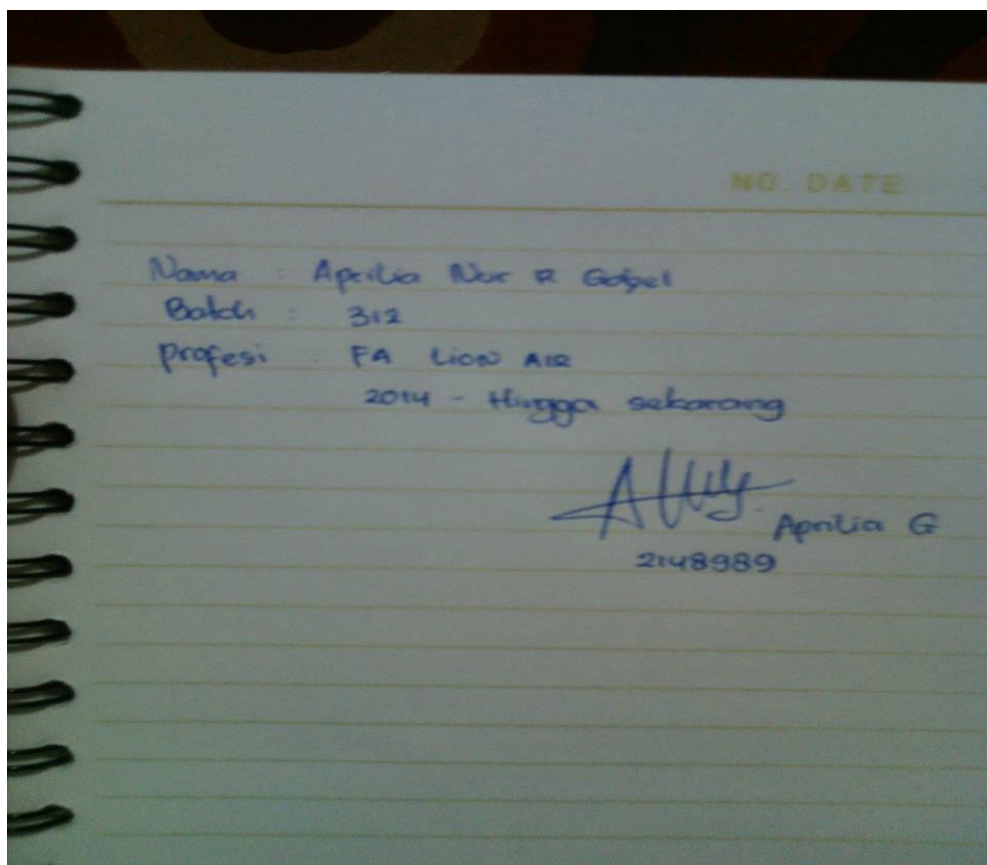 NO. DATE
Nama : Aprilia Nur R
Batch : 312
Profesi : FA LION AIR
2014 - Hingga sekarang
Aprilia G
2148989